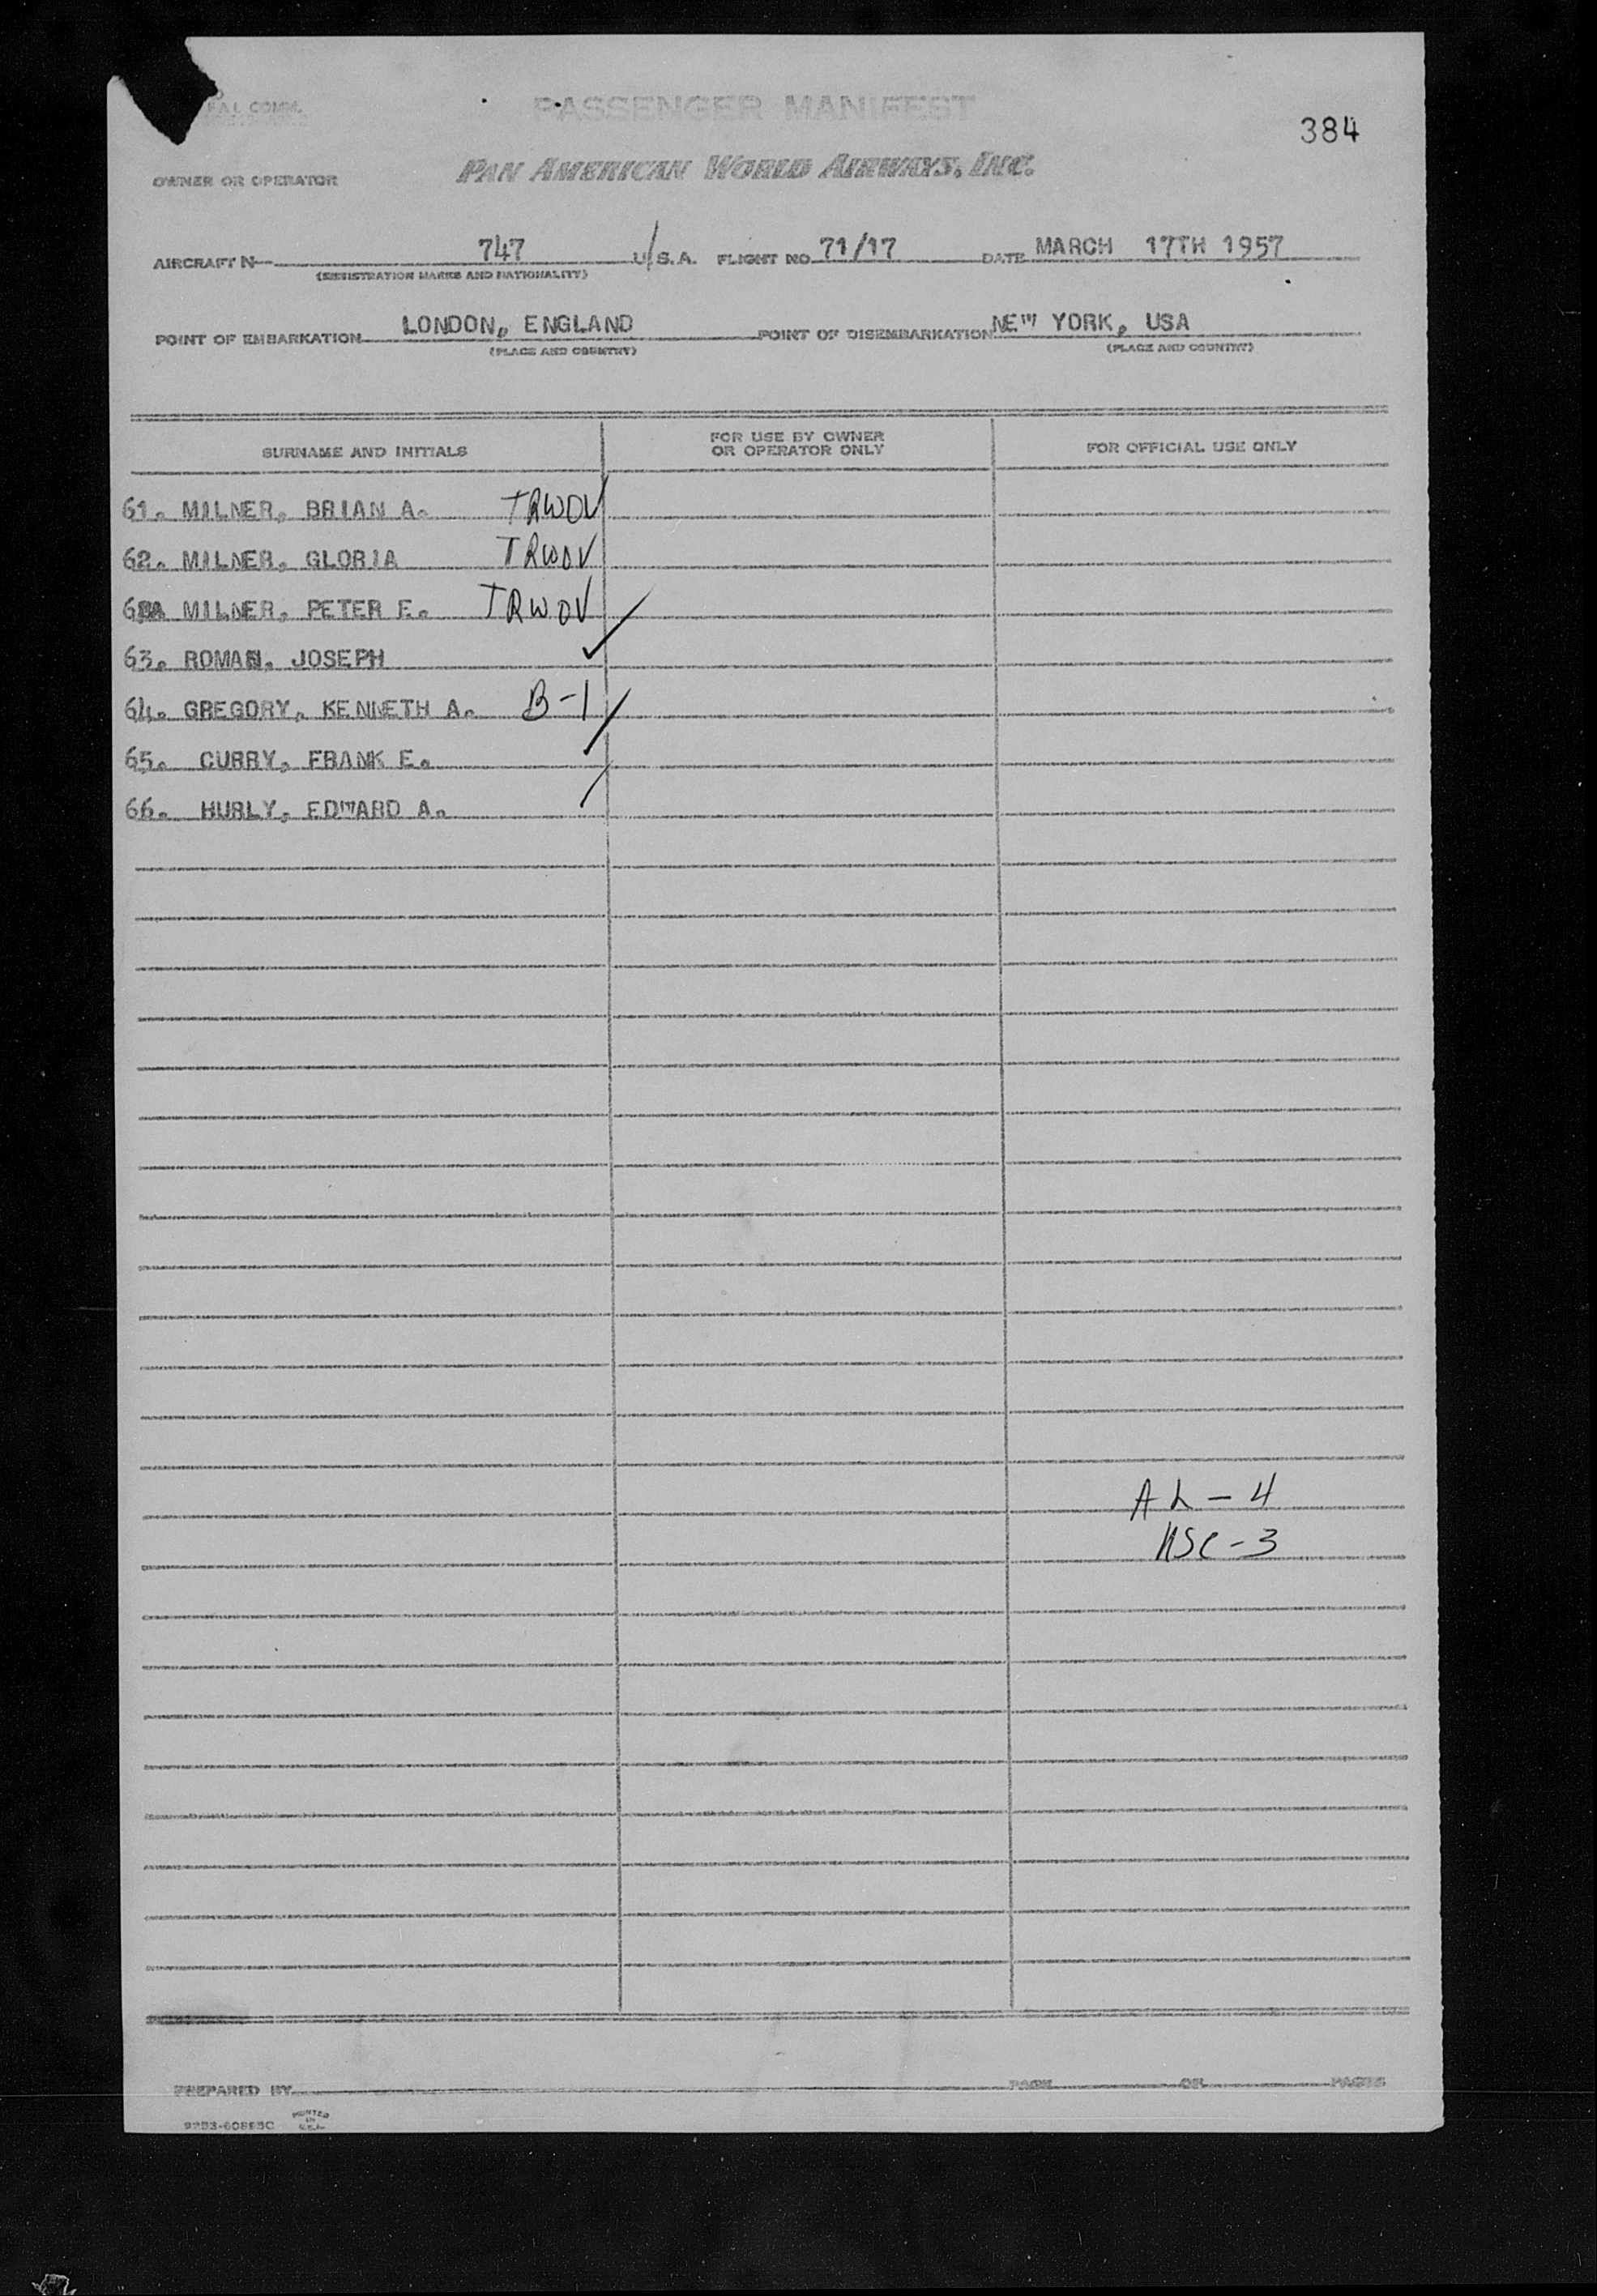 PASSENGER MANIFEST
384
OWNER OR OPERATOR PAN AMERICAN WORLD AIRWAYS, INC.
AIRCRAFT N 747 U.S.A. FLIGHT NO. 71/17 DATE MARCH 17TH 1957
(REGISTRATION MARKS AND NATIONALITY)
POINT OF EMBARKATION LONDON, ENGLAND POINT OF DISEMBARKATION NEW YORK, USA
(PLACE AND COUNTRY) (PLACE AND COUNTRY)
SURNAME AND INITIALS FOR USE BY OWNER OR OPERATOR ONLY FOR OFFICIAL USE ONLY
61. MILNER, BRIAN A. TRWOV
62. MILNER, GLORIA TRWOV
MILNER, PETER E. TRWOV
63. ROMAN, JOSEPH
64. GREGORY, KENNETH A. B-1
65. CURRY, FRANK E.
66. HURLY, EDWARD A.
AL-4
USC-3
PREPARED BY PAGE OF PAGES
PRINTED IN U.S.A.